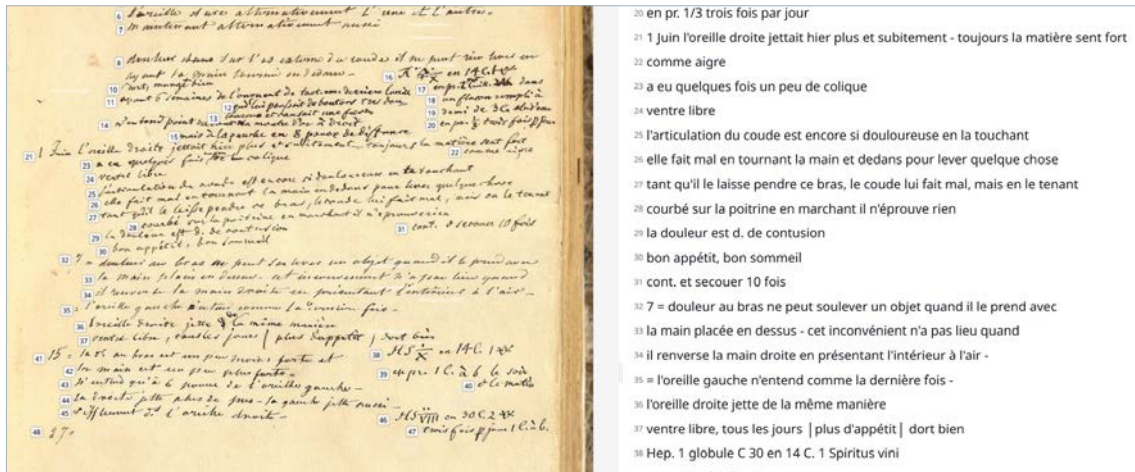 6 l'oreille alternativement l'une et l'autre.
7 maintenant alternativement aussi
8 douleur dans l'os du coude il ne peut rien lever en
ayant la main tournée en dedans
10 dort, mange bien
11 ayant 6 semaines
12 qui lui poussoit des boutons
13
14 n'entend point la montre d'or à droit
15 mais à la gauche en 8 pouce de distance
16 en 14 C. 1
17 en pr. 1 dans
18 un flacon rempli à
19 demi de 3 C. d'eau
20 en pr. 1/3 trois fois p jour
21 1 Juin l'oreille droite jettait hier plus et subitement - toujours la matière sent fort
22 comme aigre
23 a eu quelques fois un peu de colique
24 ventre libre
25 l'articulation du coude est encore si douloureuse en la touchant
26 elle fait mal en tournant la main et dedans pour lever quelque chose
27 tant qu'il le laisse pendre ce bras, le coude lui fait mal, mais en le tenant
28 courbé sur la poitrine en marchant il n'éprouve rien
29 la douleur est d. de contusion
30 bon appétit, bon sommeil
31 cont. et secouer 10 fois
32 7 = douleur au bras ne peut soulever un objet quand il le prend avec
33 la main placée en dessus - cet inconvénient n'a pas lieu quand
34 il renverse la main droite en présentant l'intérieur à l'air -
35 = l'oreille gauche n'entend comme la dernière fois -
36 l'oreille droite jette de la même manière
37 ventre libre, tous les jours | plus d'appétit | dort bien
38 en 14 C. 1
39 en pr. 1 C. à b. le soir
40 et le matin
41 15 = la dl au bras est un peu moins forte et
42 la main est un peu plus forte -
43 n'entend qu'à 6 pouce de l'oreille gauche -
44 la droite jette plus de pus - la gauche jette aussi -
45 sifflement ds l'oreille droite -
46 en 30 C. 2
47 trois fois p jour 1 C. à b.
48 27 =
20 en pr. 1/3 trois fois par jour
21 1 Juin l'oreille droite jettait hier plus et subitement - toujours la matière sent fort
22 comme aigre
23 a eu quelques fois un peu de colique
24 ventre libre
25 l'articulation du coude est encore si douloureuse en la touchant
26 elle fait mal en tournant la main et dedans pour lever quelque chose
27 tant qu'il le laisse pendre ce bras, le coude lui fait mal, mais en le tenant
28 courbé sur la poitrine en marchant il n'éprouve rien
29 la douleur est d. de contusion
30 bon appétit, bon sommeil
31 cont. et secouer 10 fois
32 7 = douleur au bras ne peut soulever un objet quand il le prend avec
33 la main placée en dessus - cet inconvénient n'a pas lieu quand
34 il renverse la main droite en présentant l'intérieur à l'air -
35 = l'oreille gauche n'entend comme la dernière fois -
36 l'oreille droite jette de la même manière
37 ventre libre, tous les jours |plus d'appétit| dort bien
38 Hep. 1 globule C 30 en 14 C. 1 Spiritus vini